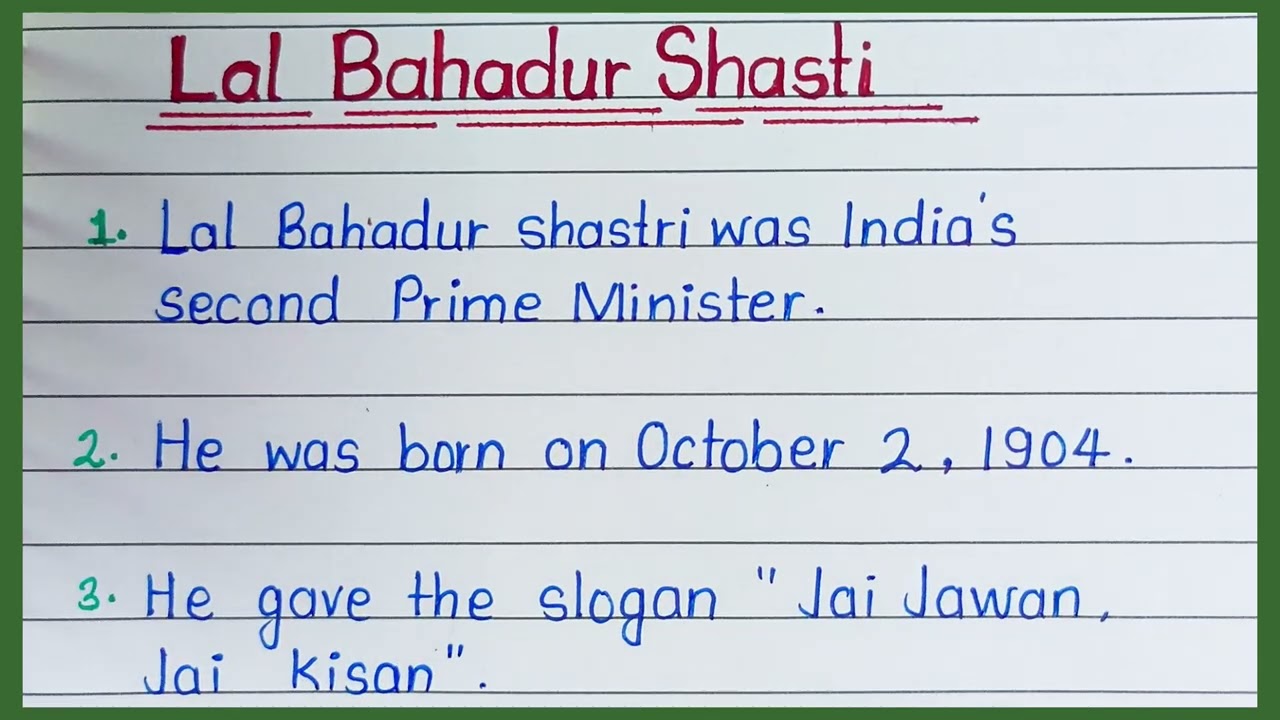 Lal Bahadur Shasti
1. Lal Bahadur shastri was India's
second Prime Minister.
2. He was born on October 2, 1904.
3. He gave the slogan "Jai Jawan,
Jai kisan".